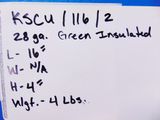 KSCU/116/2
28 ga. Green Insulated
L- 16"
W- N/A
H- 4"
Wgt.- 4 Lbs.